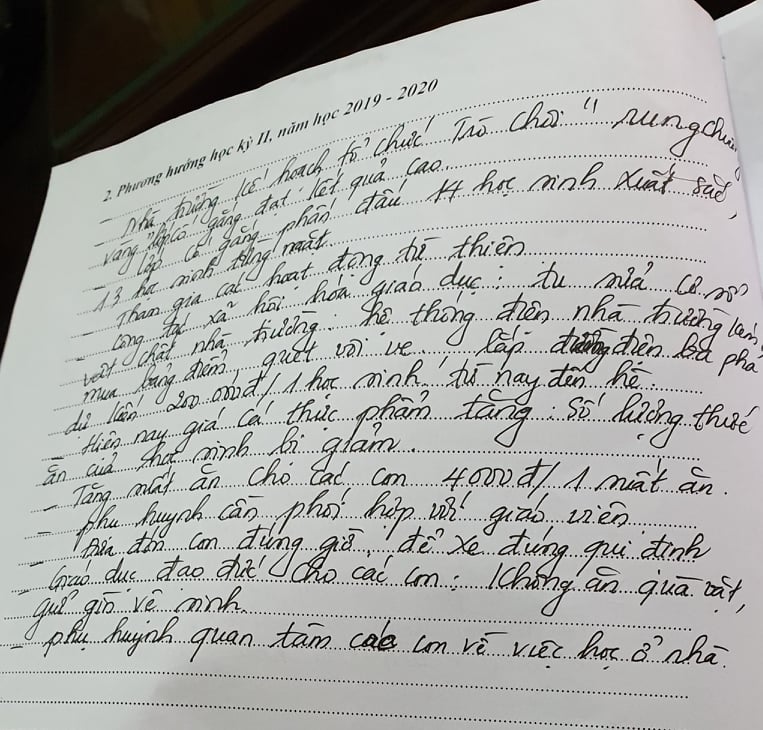 2. Phương hướng học kỳ II, năm học 2019 - 2020
- Nhà trường kế hoạch tổ chức Trò chơi " rung chuông
vàng" lớp cố gắng đạt kết quả cao.
- Lớp cố gắng phấn đấu 14 học sinh xuất sắc,
13 học sinh từng mặt
- Tham gia các hoạt động từ thiện
- Công tác xã hội hóa giáo dục: tu sửa cơ sở
vật chất nhà trường. hệ thống điện nhà trường làm,
mua bảng điểm, quét vôi ve. lắp đường điện ba pha
dự kiến 200.000đ/1 học sinh từ nay đến hè.
- Hiện nay giá cả thực phẩm tăng: Số lượng thức
ăn của học sinh bị giảm.
- Tăng mất ăn cho các con 4000đ/1 suất ăn.
- phụ huynh cần phối hợp với giáo viên
- Đưa đón con đúng giờ, để xe đúng qui định
- Giáo dục đạo đức cho các con: Không ăn quà vặt,
giữ gìn vệ sinh.
- phụ huynh quan tâm các con về việc học ở nhà.